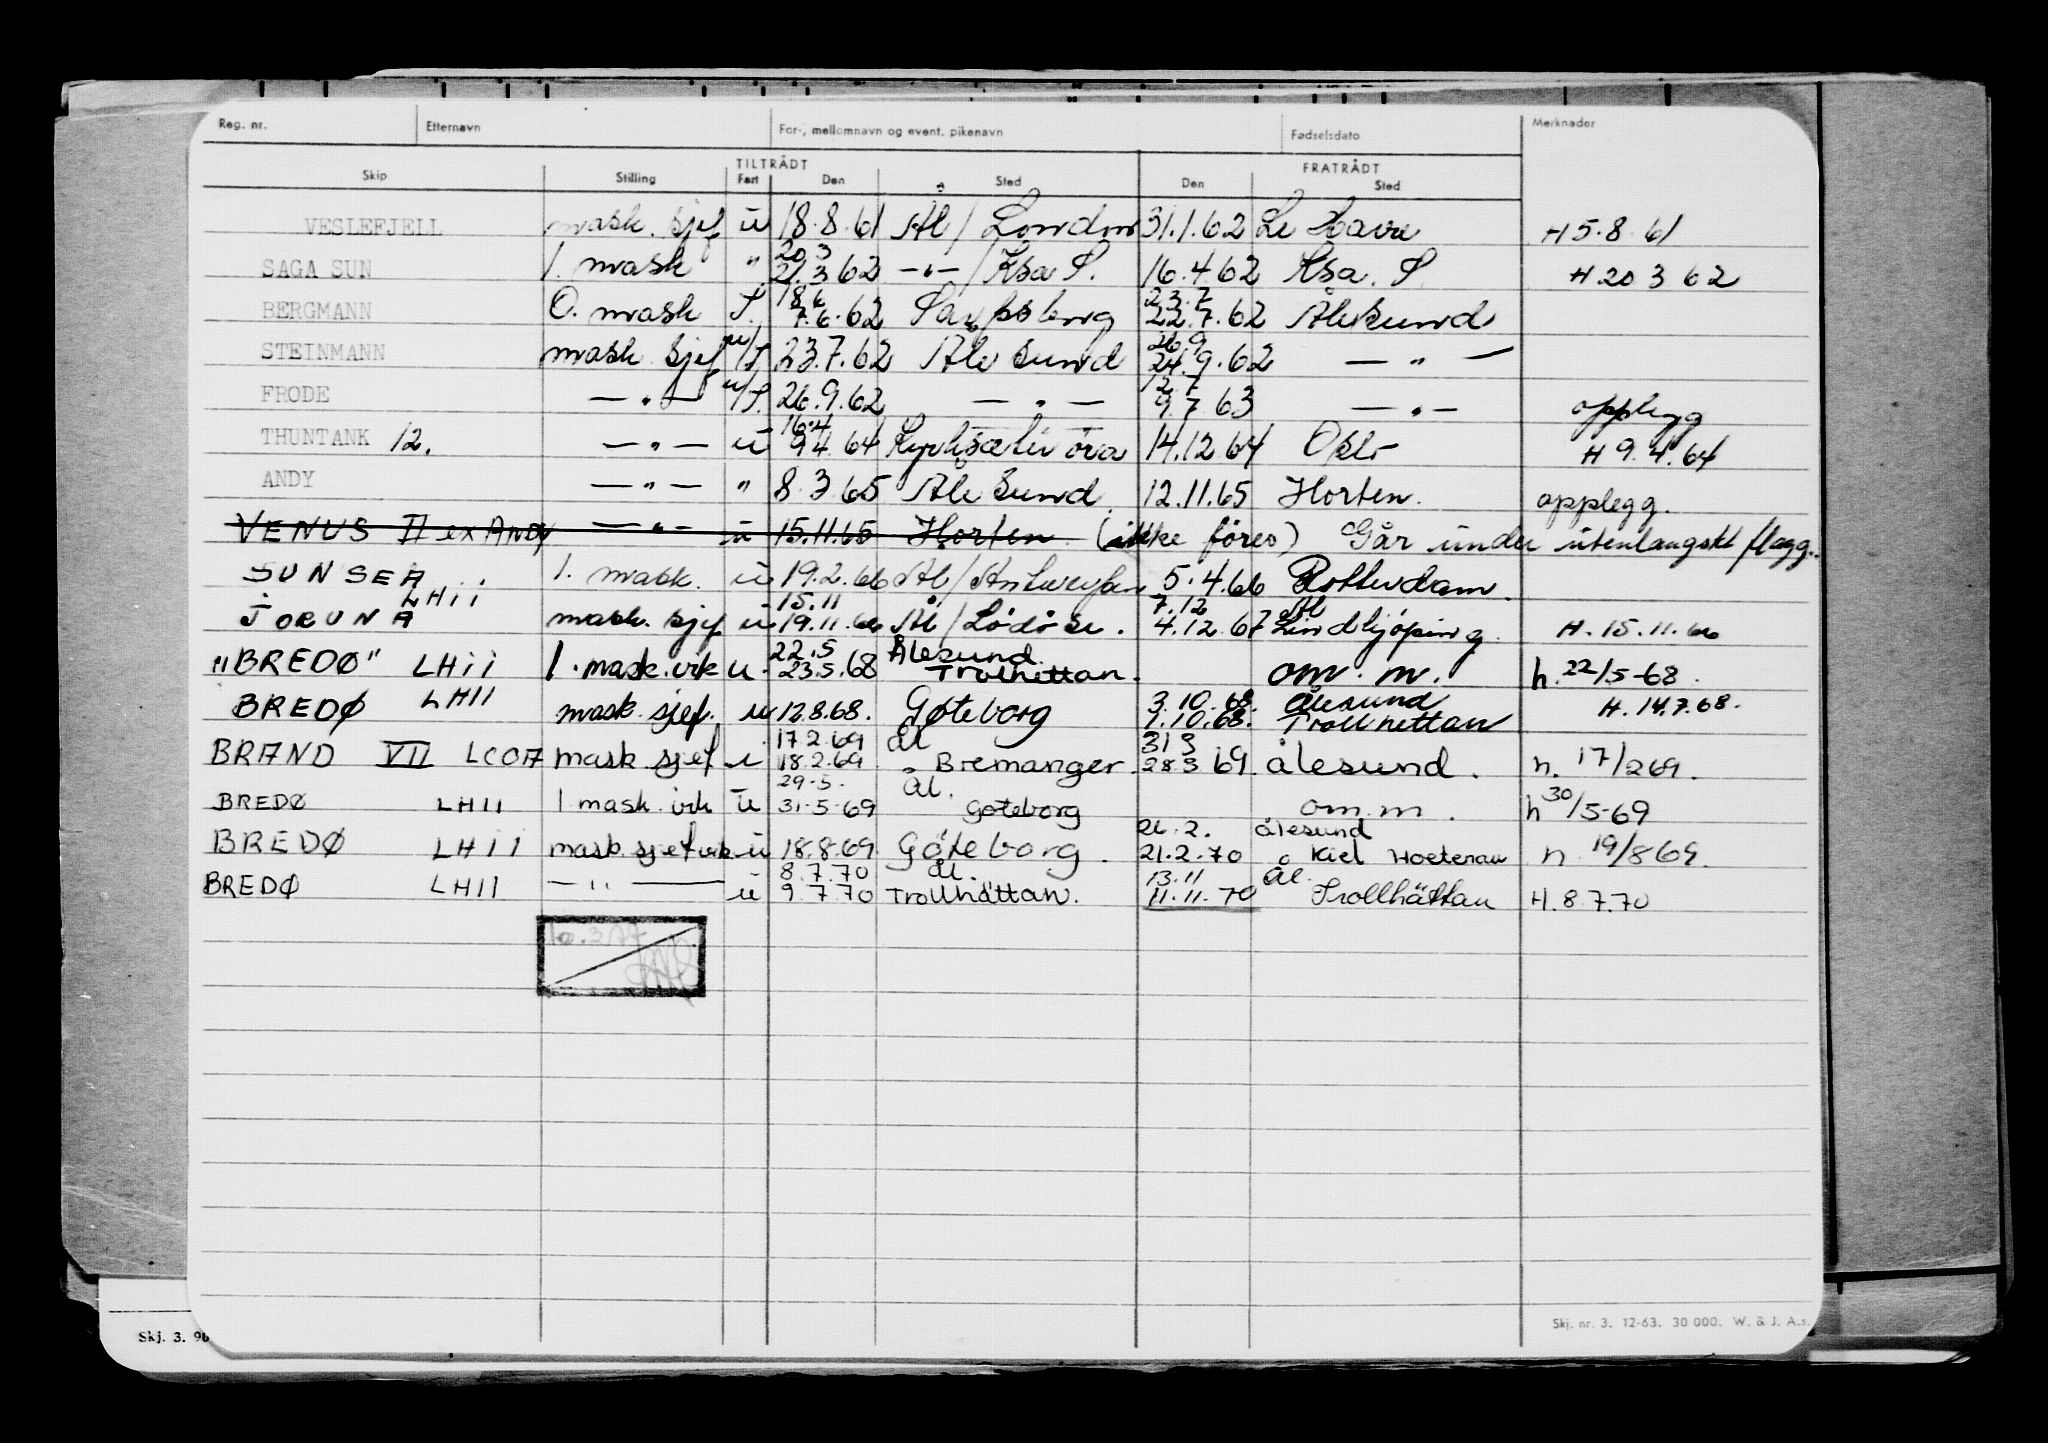 Reg. nr. Etternavn For-, mellomnavn og event. pikenavn Fødselsdato Merknader
TILTRÅDT FRATRÅDT
Skip Stilling Fart Den Sted Den Sted
VESLEFJELL mask. sjef u 18.8.61 Ål / London 31.1.62 Le Havre H 5.8.61
20.3
SAGA SUN 1. mask " 21.3.62 —"— / Ksa S. 16.4.62 Ksa. S. H 20 3 62
18.6 23.7
BERGMANN O. mask S. 7.6.62 Sarpsborg 22.7.62 Ålesund
26.9
STEINMANN mask sjef u/S 23.7.62 Ålesund 24.9.62 — " —
12.7
FRODE — " — u/S. 26.9.62 — " — 9.7.63 — " — opplegg
16.4
THUNTANK 12. — " — u 9.4.64 Kyrksæterøra 14.12.64 Oslo H 9.4.64
ANDY — " — " 8.3.65 Ålesund 12.11.65 Horten. opplegg.
VENUS II ex ANDY — " — u 15.11.65 Horten (ikke føres) Går under utenlangskt flagg.
SUNSEA 1. mask. u 19.2.66 Ål / Antwerpen 5.4.66 Rotterdam.
LHii 15.11 7.12 Ål
JORUNA mask. sjef u 19.11.66 Ål / Lödöse. 4.12.67 Lindkjöping. H. 15.11.66
22.5 Ålesund.
"BREDØ" LHii 1. mask. vik u 23.5.68 Trolhettan. om. m. h. 22/5-68.
3.10.68. Ålesund
BREDØ LHII mask sjef. u 12.8.68. Gøteborg 1.10.68. Trollhettan H. 14.7.68.
17.2.69 Ål 31 3
BRAND VII LCOA mask sjef u 18.2.69 Bremanger. 28 3 69. ålesund. h. 17/2 69.
29-5. Ål.
BREDØ LHII 1 mask. vik u 31-5-69 Gøteborg om.m. h 30/5-69
26.2. ålesund
BREDØ LHii mask sjef vik u 18.8.69 Göteborg. 21.2.70 Kiel Hoetenau h 19/8 69.
8.7.70 Ål. 13.11 Ål.
BREDØ LHII — " — u 9.7.70 Trollhättan. 11.11.70 Trollhättan H. 8.7.70
Skj. nr. 3. 12-63. 30 000. W. & J. A.s.
Skj. 3. 90